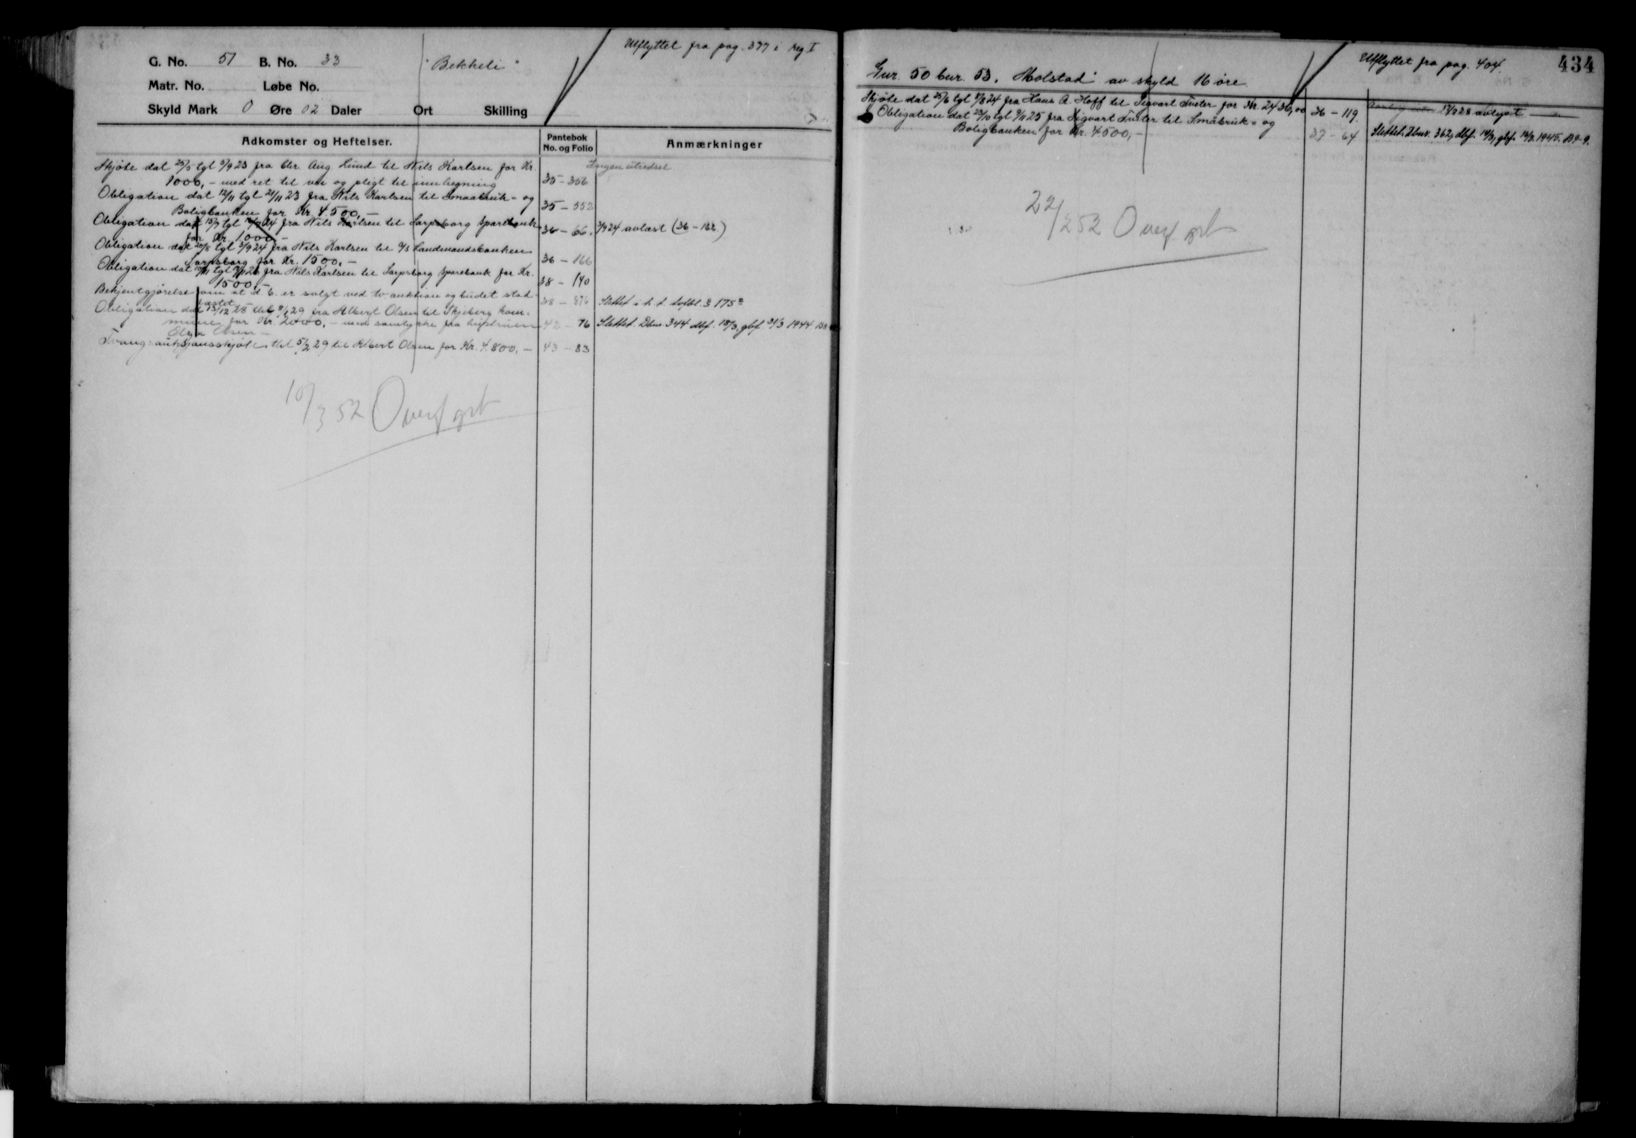 Utflyttet fra pag. 377 i reg. I
G. No. 51 B. No. 33 "Bekkeli"
Matr. No. Løbe No.
Skyld Mark 0 Øre 02 Daler Ort Skilling
Adkomster og Heftelser. Pantebok No. og Folio Anmærkninger
Skjøte dat 25/5 tgl 5/9 23 fra Chr. Aug. Lund til Nils Karlsen for Kr.
1000,- med ret til vei og pligt til innhegning 35 - 356
Obligation dat 12/11 tgl 21/11 23 fra Nils Karlsen til Smaabruk- og
Boligbanken for Kr. 4500,- 35 - 553
Obligation dat 15/7 tgl fra Nils Karlsen til Sarpsborg Sparebank
for Kr. 1000,- 36 - 66. avlæst (36 - 182)
Obligation dat tgl 5/9 24 fra Nils Karlsen til A/S Landmandsbanken
Sarpsborg for Kr. 1500,- 36 - 166
Obligation dat tgl fra Nils Karlsen til Sarpsborg Sparebank for Kr.
1500,- 38 - 140
Bekjentgjørelse om at d. E. er solgt ved tv. auktion og budet stad-
fæstet 38 - 576 Slettet
Obligation dat 13/12 28 tgl 9/1 29 fra Albert Olsen til Skjeberg kom-
mune for Kr. 2000,- med samtykke fra hustruen 42 - 76 Slettet Dbnr. 344 dbf. 18/3, gbf. 31/3 1944
Olga Olsen -
Tvangsauksjonsskjøte tgl 5/2 29 til Albert Olsen for Kr. 4.800,- 43 - 83
10/3 52 Overført
Utflyttet fra pag. 404.
434
Gnr. 50 bnr. 53. "Holstad" av skyld 16 øre
Skjøte dat 25/6 tgl 8/8 24 fra Hans A. Hoff til Sigvart Luster for Kr. 2436,00 36 - 119 avlyst
Obligation dat 22/10 tgl 9/11 25 fra Sigvart Luster til Småbruk- og
Boligbanken for Kr. 4500,- 37 - 64 Slettet. Dbnr. 362, dbf. 14/3, gbf. 14/3 1945.
22/2 52 Overført